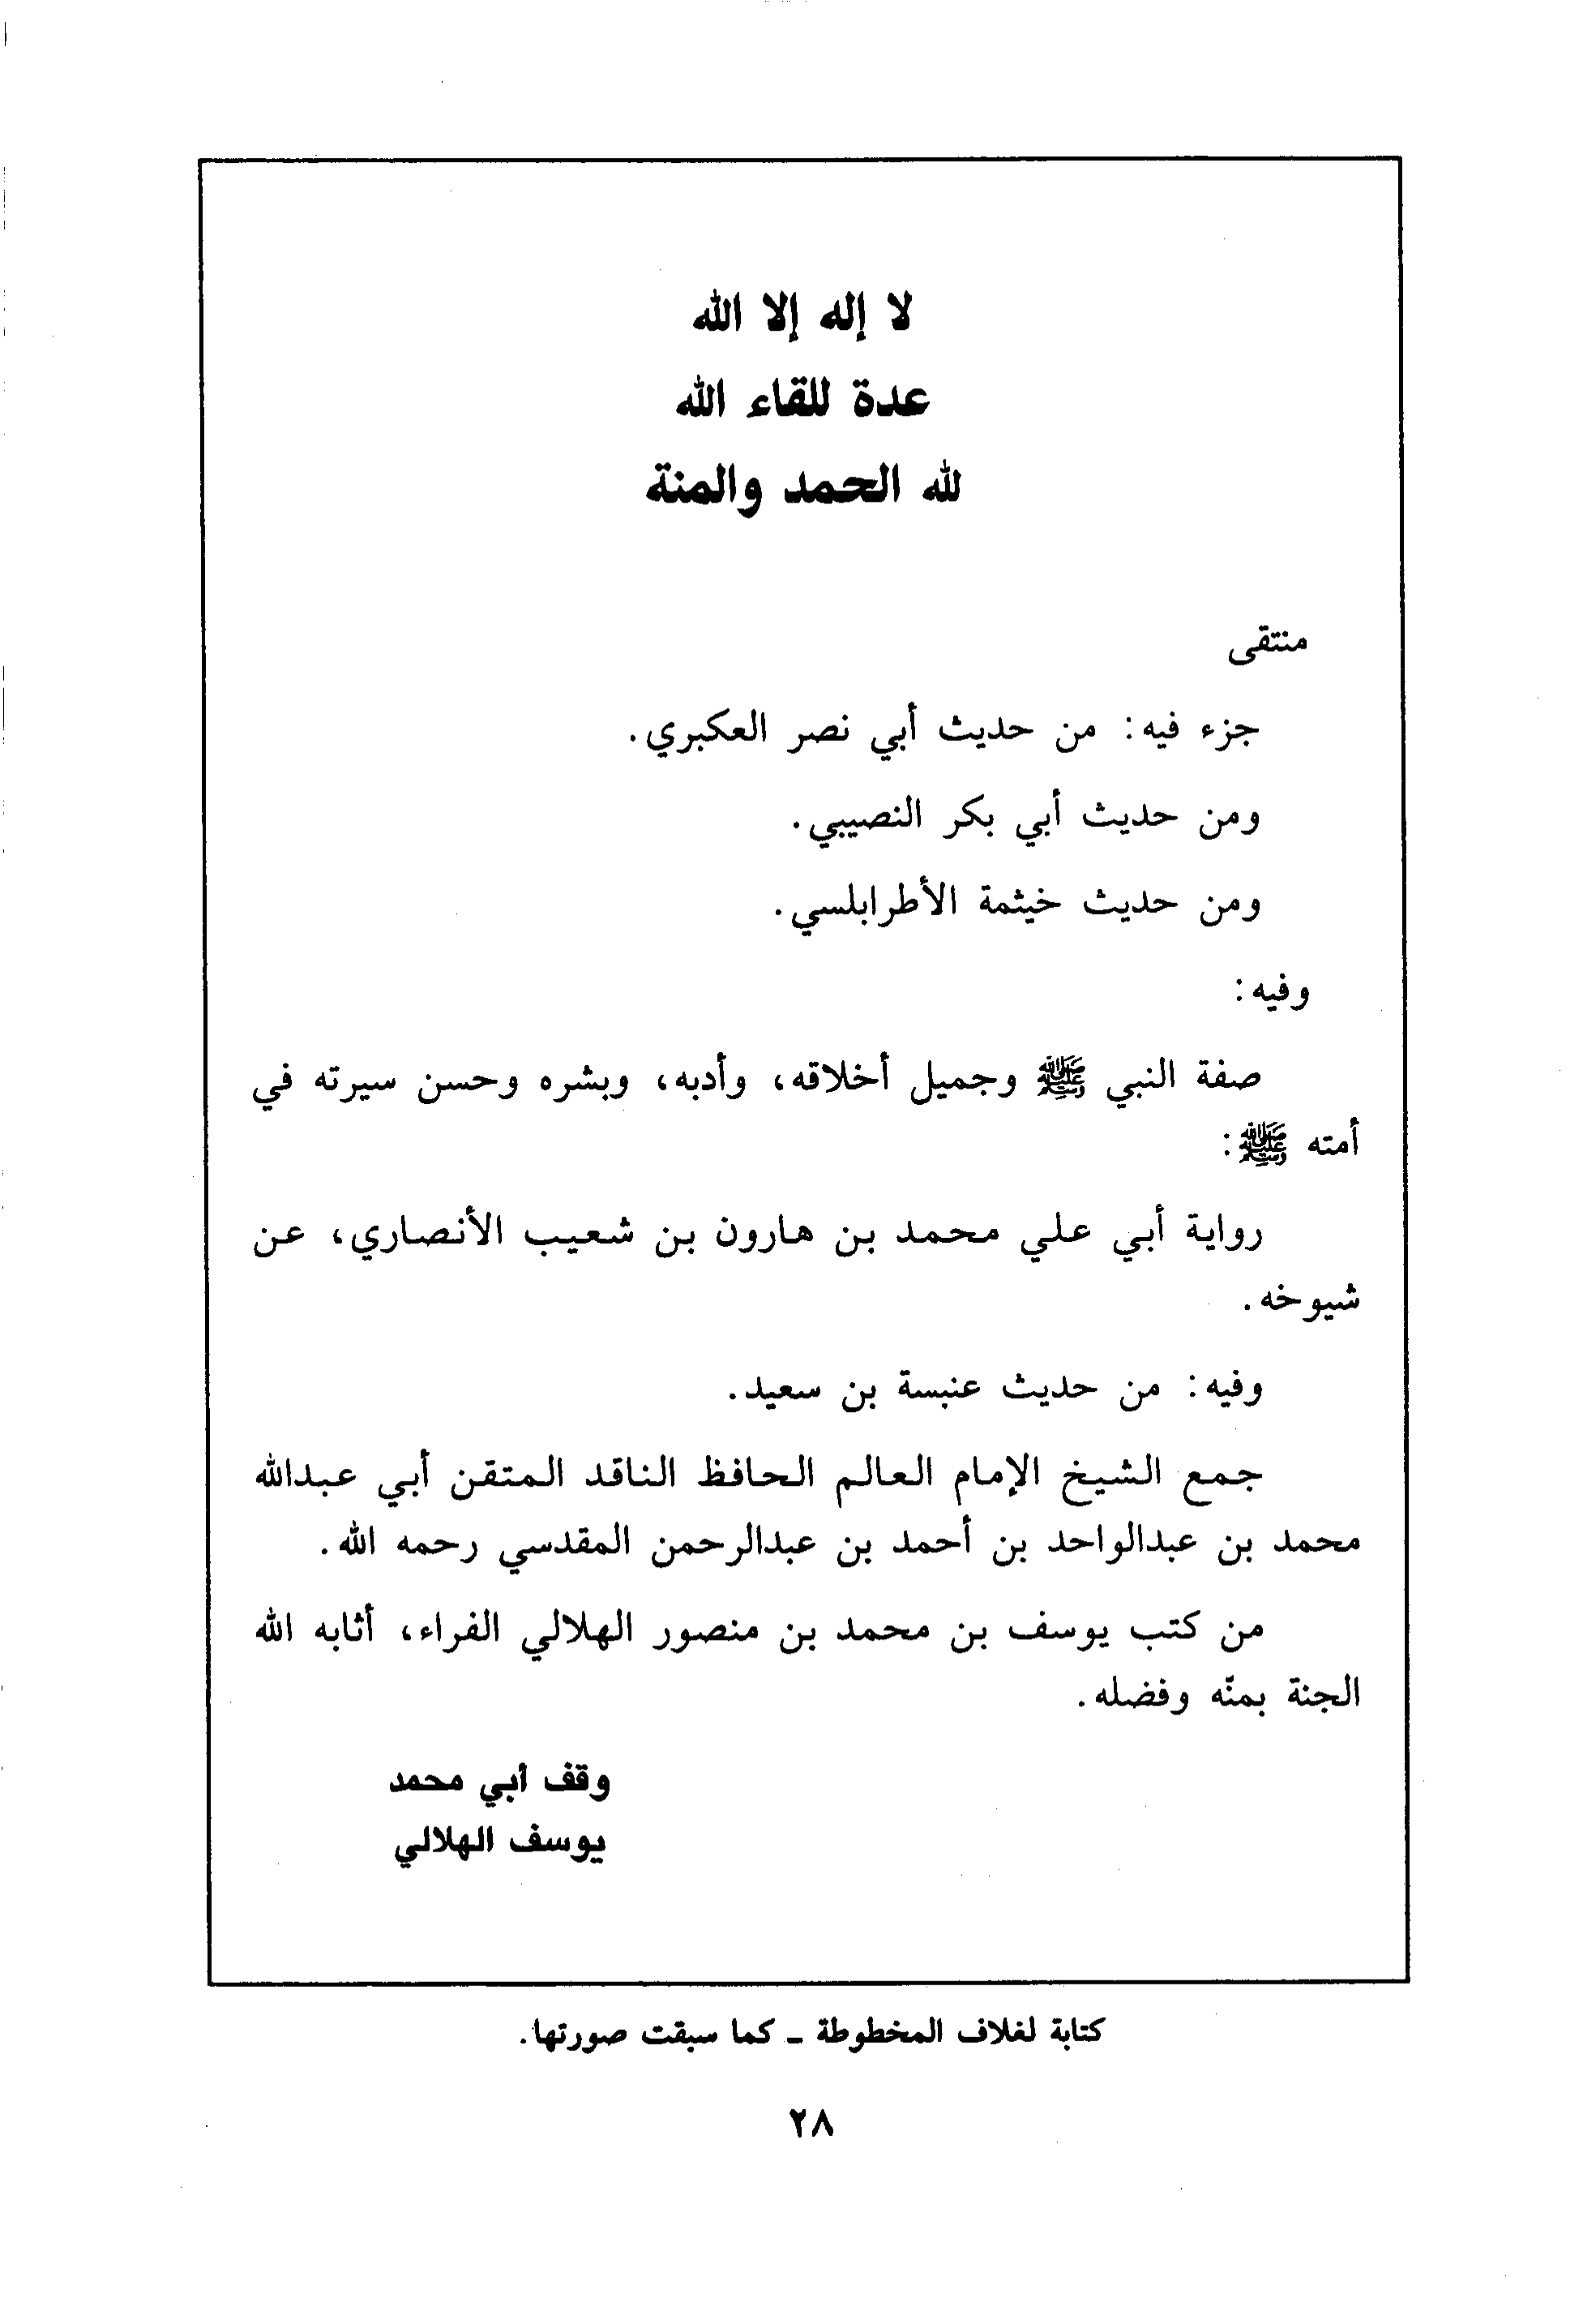 لا إله إلا الله
عدة للقاء الله
لله الحمد والمنة
منتقى
جزء فيه: من حديث أبي نصر العكبري.
ومن حديث أبي بكر النصيبي.
ومن حديث خيثمة الأطرابلسي.
وفيه:
صفة النبي ﷺ وجميل أخلاقه، وأدبه، وبشره وحسن سيرته في
أمته ﷺ:
رواية أبي علي محمد بن هارون بن شعيب الأنصاري، عن
شيوخه.
وفيه: من حديث عنبسة بن سعيد.
جمع الشيخ الإمام العالم الحافظ الناقد المتقن أبي عبدالله
محمد بن عبدالواحد بن أحمد بن عبدالرحمن المقدسي رحمه الله.
من كتب يوسف بن محمد بن منصور الهلالي الفراء، أثابه الله
الجنة بمنّه وفضله.
وقف أبي محمد
يوسف الهلالي
كتابة لغلاف المخطوطة ـ كما سبقت صورتها.
٢٨